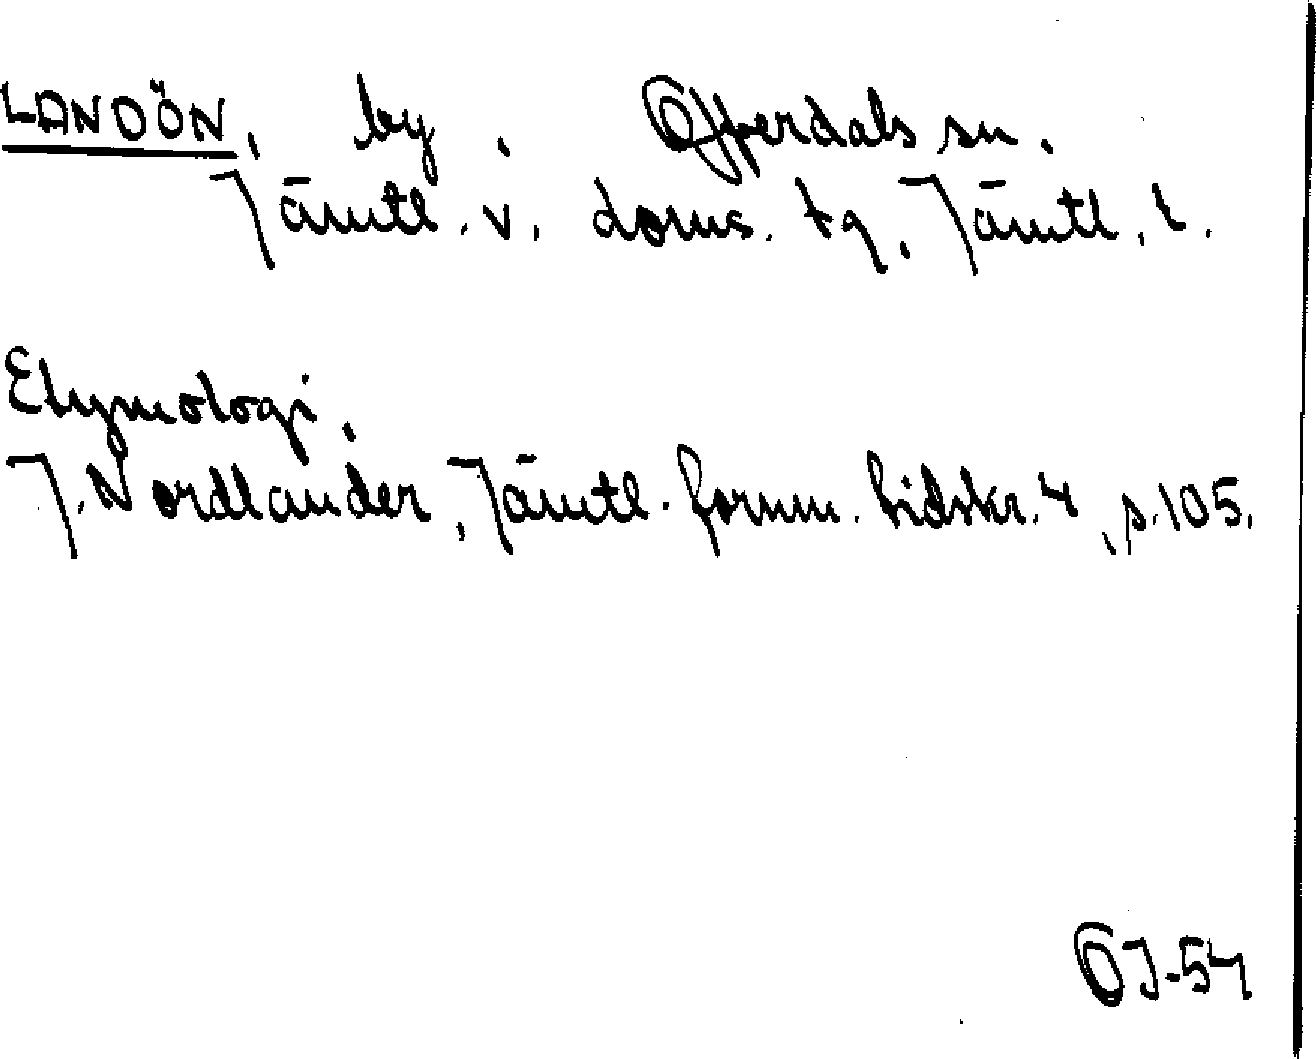 LANDÖN, by, Offerdals sn.
Jämtl. v. doms. tg. Jämtl. l.
Etymologi.
J. Nordlander, Jämtl. fornm. tidskr. 4, s. 105.
OJ-54